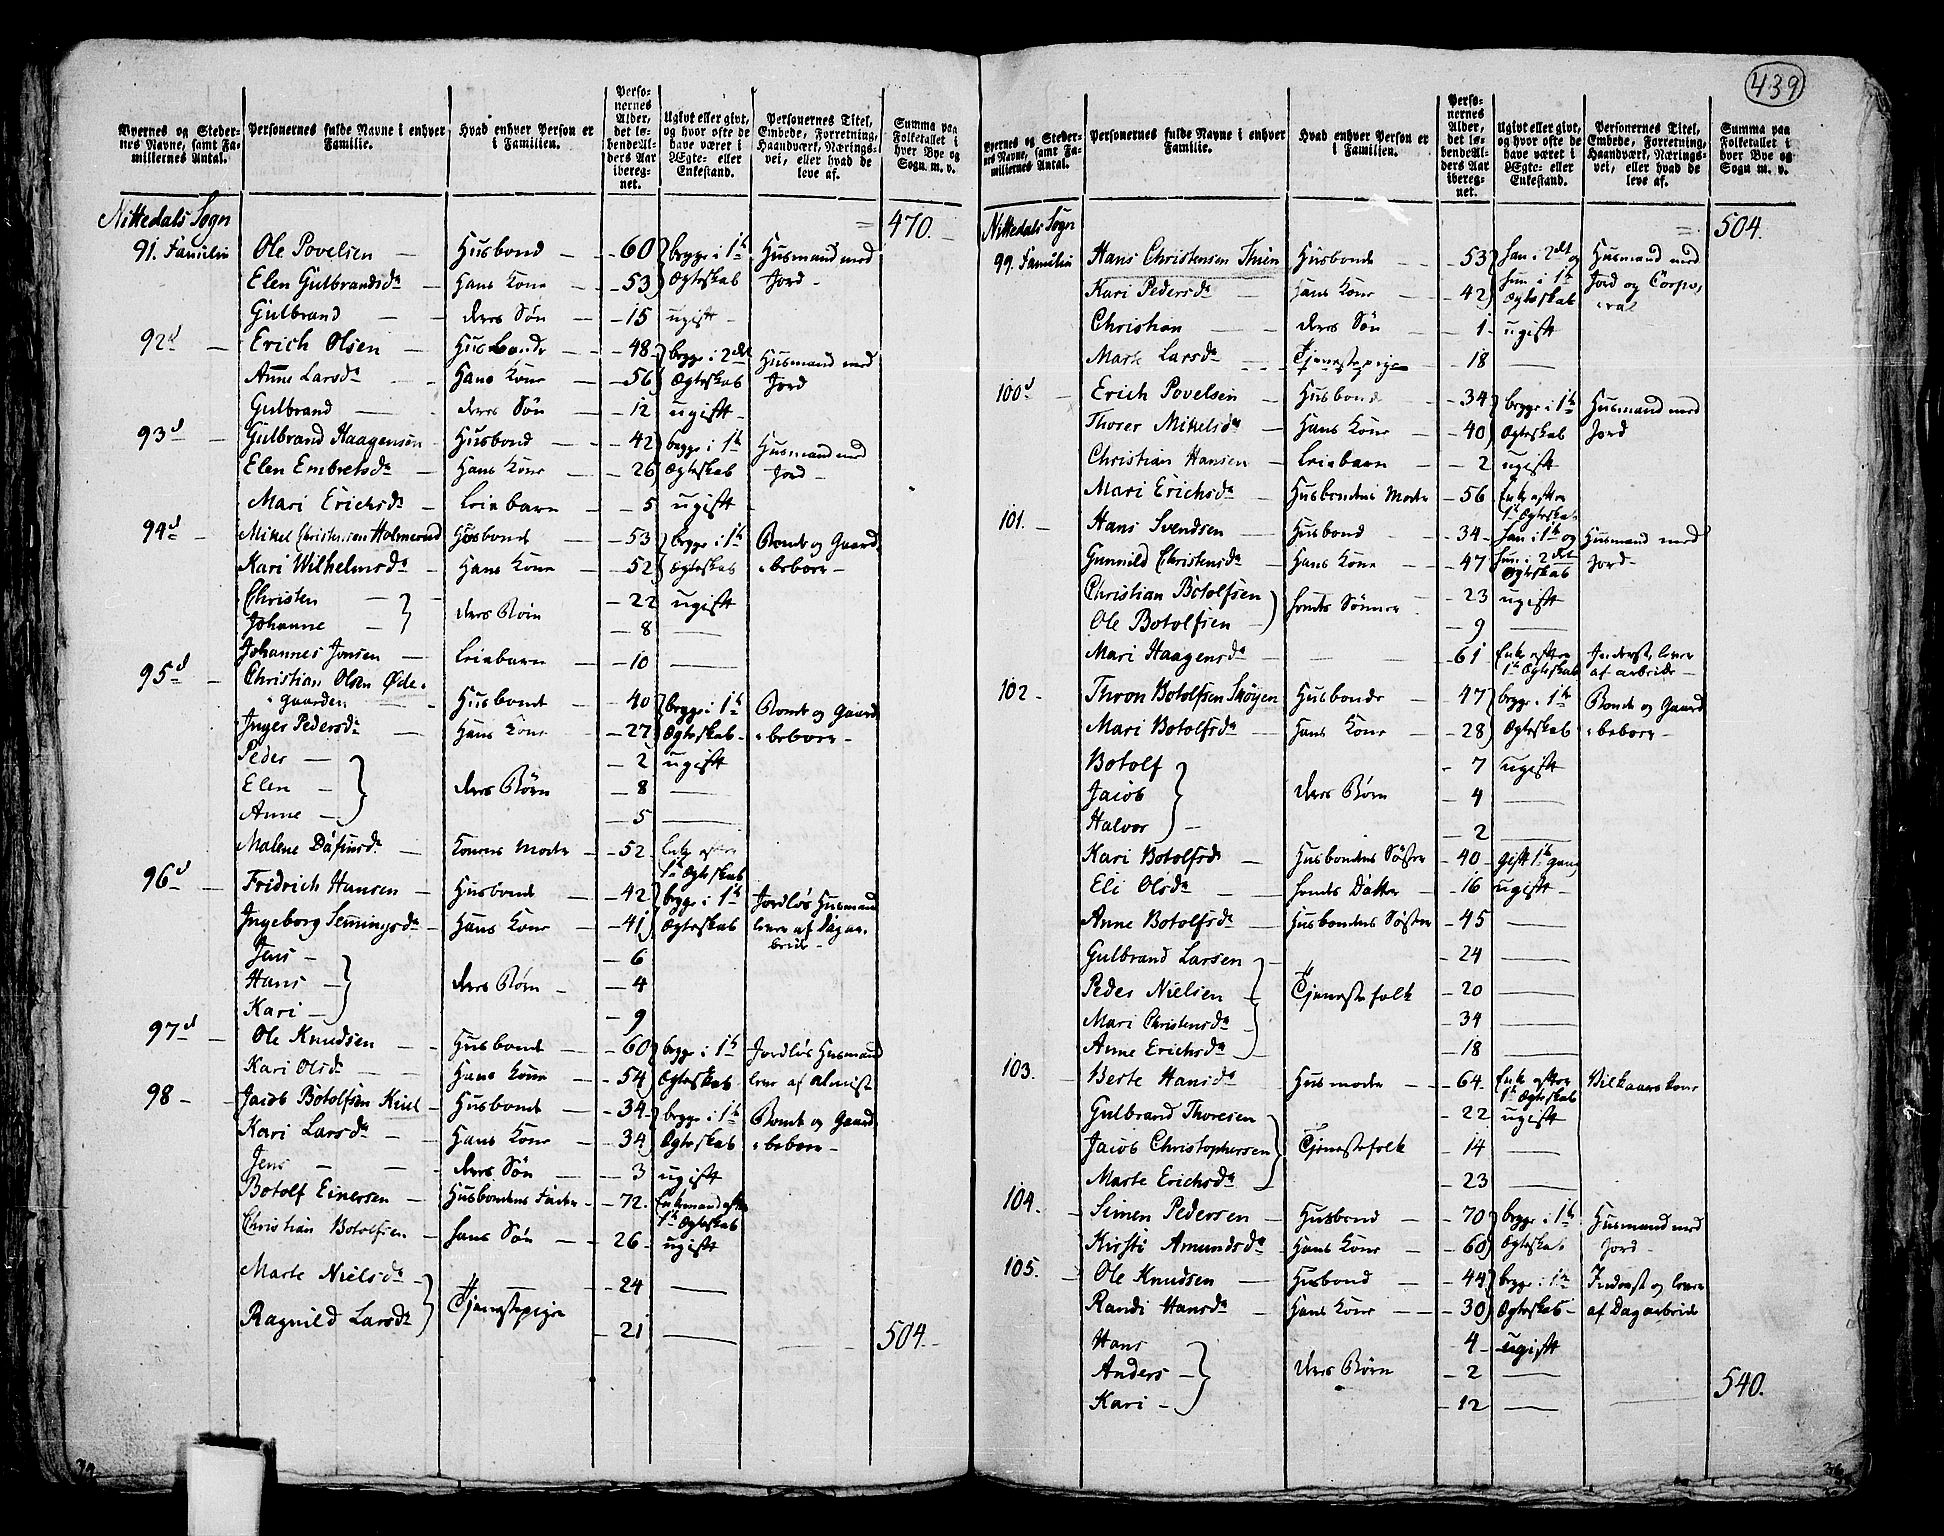 439
Byernes og Steder- Personernes fulde Navne i enhver Hvad enhver Person er Perso- Ugivt eller givt, Personernes Titel, Summa paa
nes Navne, samt Fa- Familie. i Familien. nernes og hvor ofte de Embede, Forretning, Folketallet i
milliernes Antal. Alder, det lø- have været i Haandværk, Nærings- hver Bye og
bende Al- Ægte- eller vei, eller hvad de Sogn m. v.
ders Aar Enkestand. leve af.
ibereg-
net.
Nittedals Sogn = 470.
91. Familie Ole Povelsen — Husbond — 60 begge i 1te Husmand med
Elen Gulbrandsdr — Hans Kone — 53 Ægteskab Jord —
Gulbrand — deres Søn — 15 ugift —
92d — Erich Olsen — Husbonde — 48 begge i 2det Husmand med
Anne Larsdr — Hans Kone — 56 Ægteskab Jord
Gulbrand — deres Søn — 12 ugift —
93d — Gulbrand Haagensen Husbond — 42 begge i 1te Husmand med
Elen Embretsdr — Hans Kone — 26 Ægteskab Jord —
Mari Erichsdr — Leiebarn — 5 ugift —
94d — Mikel Christensen Holmerud Husbonde — 53 begge i 1te Bonde og Gaard-
Kari Wilhelmsdr — Hans Kone — 52 Ægteskab beboer —
Christen — 22 ugift
Johanne — deres Børn — 8 —
Johannes Jonsen — Leiebarn — 10 —
95d — Christian Olsen Øde-
gaarden — Husbonde — 40 begge i 1te Bonde og Gaard-
Inger Pedersdr — Hans Kone — 27 Ægteskab — beboer —
Peder — 2 ugift
Elen — deres Børn — 8 —
Anne — 5 —
Malene — Konens Moder — 52 Enke efter
1te Ægteskab
96d — Fridrich Hansen — Husbonde — 42 begge i 1te Jordløs Husmand
Ingeborg Semmingsdr — Hans Kone — 41 Ægteskab lever af Dagar-
beide —
Jens — 6
Hans — deres Børn — 4
Kari — 9
97d — Ole Knudsen — Husbonde — 60 begge i 1te Jordløs Husmand
Kari Olsdr — Hans Kone — 54 Ægteskab lever af almisse
98 — Jacob Botolfsen Husbonde — 34 begge i 1te Bonde og Gaard-
Kari Larsdr — Hans Kone — 34 Ægteskab beboer —
Jens — deres Søn — 3 ugift
Botolf Einersen — Husbondens Fader — 72. Enkemand efter
1te Ægteskab
Christian Botolfsen — hans Søn — 26 — ugift
Marte Nielsdr — 24 —
Tjenestepiger
Ragnild Larsdr — 21 —
504. —
Byernes og Steder- Personernes fulde Navne i enhver Hvad enhver Person er Perso- Ugivt eller givt, Personernes Titel, Summa paa
nes Navne, samt Fa- Familie. i Familien. nernes og hvor ofte de Embede, Forretning, Folketallet i
milliernes Antal. Alder, det lø- have været i Haandværk, Nærings- hver Bye og
bende Al- Ægte- eller vei, eller hvad de Sogn m. v.
ders Aar Enkestand. leve af.
ibereg-
net.
Nittedals Sogn = 504.
99. Familie Hans Christensen Husbonde — 53 han i 2det og Husmand med
Kari Pedersdr — Hans Kone — 42 hun i 1te Jord og Corpo-
Ægteskab ral
Christian — deres Søn — 1 — ugift
Marte Larsdr Tjenestepige — 18 —
100d — Erich Povelsen — Husbonde — 34 begge i 1te Husmand med
Thorer Mikelsdr — Hans Kone — 40 Ægteskab Jord
Christian Hansen — Leiebarn — 2 ugift
Mari Erichsdr — Husbondens Moder — 56 Enke efter
1te Ægteskab
101. — Hans Svendsen — Husbond — 34 — han i 1te og Husmand med
Gunnild Christensdr — Hans Kone — 47 hun i 2det Jord —
Ægteskab
Christian Botolfsen — 23 ugift
hendes Sønner
Ole Botolfsen — 9 —
Mari Haagensdr — 61 Enke efter Inderst, lever
1te Ægteskab af arbeide —
102 — Thron Botolfsen Skøyen Husbonde — 47 begge i 1te Bonde og Gaard-
Mari Botolfsdr — Hans Kone — 28 Ægteskab beboer —
Botolf — 7 ugift
Jacob deres Børn — 4 —
Halvor — 2 —
Kari Botolfsdr — Husbondens Søster — 40 — gift 1te gang
Eli Olsdr — hendes Datter — 16 ugift —
Anne Botolfsdr — Husbondens Søster — 45 —
Gulbrand Larsen — 24 —
Peder Nielsen — Tjenestefolk — 20 —
Mari Christensdr — 34 —
Anne Erichsdr — 18 —
103. — Berte Hansdr Husmoder — 64. Enke efter Vilkaarskone
1te Ægteskab
Gulbrand Thoresen — 22 ugift
Jacob Christophersen Tjenestefolk — 14 —
Marte Erichsdr — 23 —
104. — Simen Pedersen — Husbond — 70 begge i 1te Husmand med
Kirsti Amundsdr — Hans Kone — 60 Ægteskab Jord —
105. — Ole Knudsen — Husbond — 44 begge i 1te Inderst og lever
Randi Hansdr — Hans Kone — 30 Ægteskab — af Dagarbeide
Hans 4 — ugift
Anders — deres Børn — 2 —
Kari — 12 —
540.